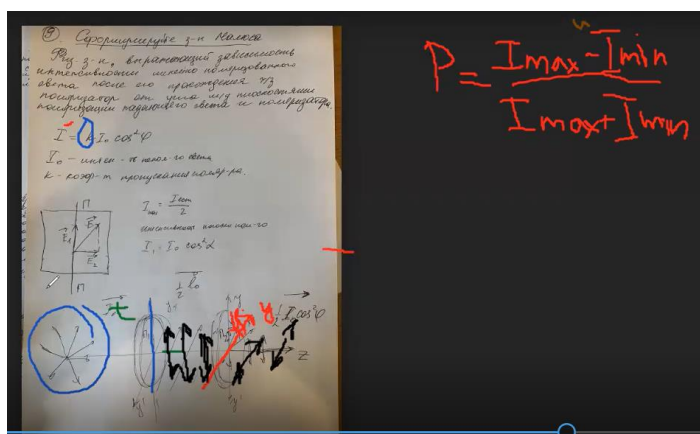 ⑨ Сформулируйте з-н Малюса
Физ з-н, выражающий зависимость
интенсивности линейно поляризованного
света после его прохождения ч/з
поляризатор от угла м/д плоскостями
поляризации падающего света и поляризатора.
I = k I₀ cos²φ
I₀ – интен-ть пада-го света
k – коэф-т пропускания поляр-ра.
П
I = I ест / 2
E₁
E
E₂
I₁ = I₀ cos²α
П
1/2 I₀
1/2 I₀ cos²φ
y
Z
y'
y'
P = Imax - Imin / Imax + Imin